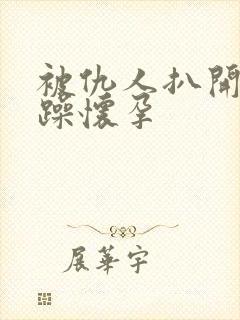 被仇人扒開
躁懷孕
展華宇